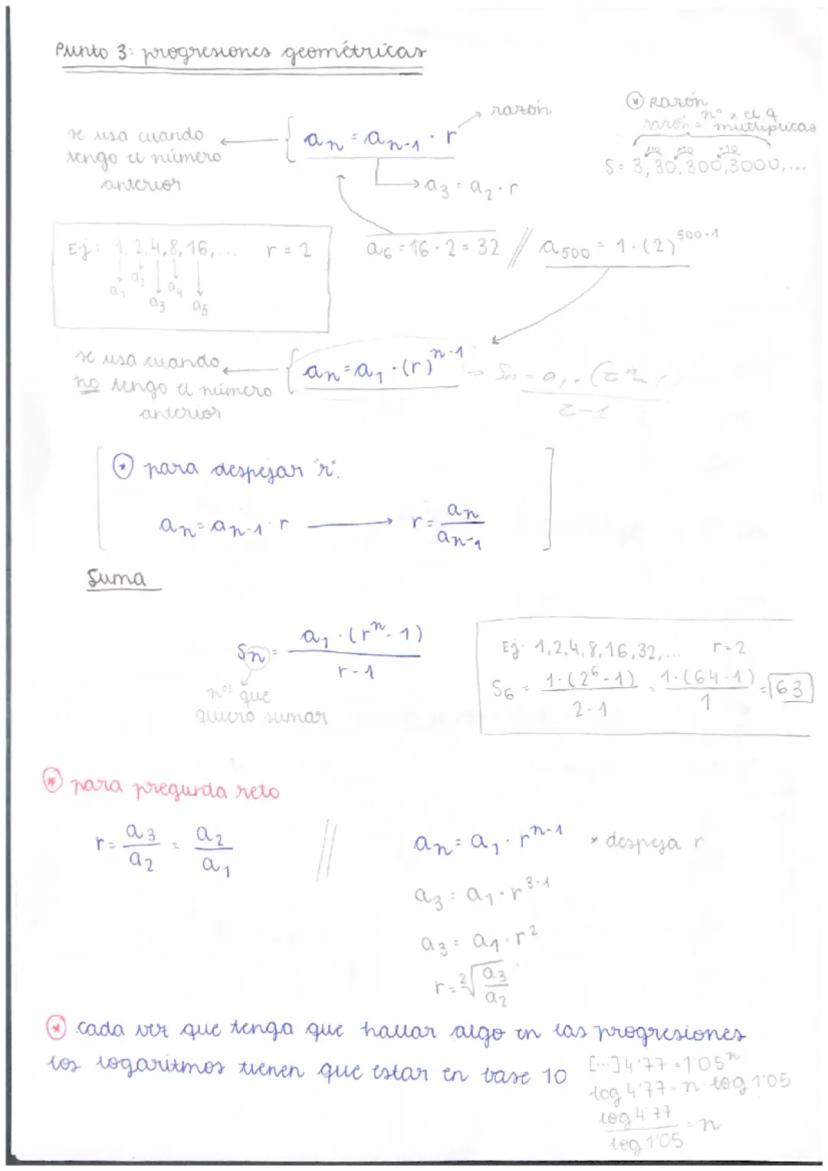 Punto 3: progresiones geométricas
se usa cuando
tengo el número
anterior
aₙ = aₙ₋₁ · r
razón
a₃ = a₂ · r
* Razón
nº x el q
razón = multiplicas
x10 x10 x10
S = 3, 30, 300, 3000, ...
Ej: 1, 2, 4, 8, 16, ... r = 2
a₁ a₂ a₃ a₄ a₅
a₆ = 16 · 2 = 32 // a₅₀₀ = 1 · (2)⁵⁰⁰⁻¹
se usa cuando
no tengo el número
anterior
aₙ = a₁ · (r)ⁿ⁻¹
* para despejar "r".
aₙ = aₙ₋₁ · r → r = aₙ / aₙ₋₁
Suma
Sₙ = a₁ · (rⁿ - 1) / r - 1
nºˢ que
quiero sumar
Ej: 1, 2, 4, 8, 16, 32, ... r = 2
S₆ = 1 · (2⁶ - 1) / 2 - 1 = 1 · (64 - 1) / 1 = 63
* para pregunta reto
r = a₃ / a₂ = a₂ / a₁ //
aₙ = a₁ · rⁿ⁻¹ * despeja r
a₃ = a₁ · r³⁻¹
a₃ = a₁ · r²
r = ²√(a₃ / a₂)
* cada vez que tenga que hallar algo en las progresiones
los logaritmos tienen que estar en base 10
[...] 4'77 = 1'05ⁿ
log 4'77 = n · log 1'05
log 4'77 / log 1'05 = n